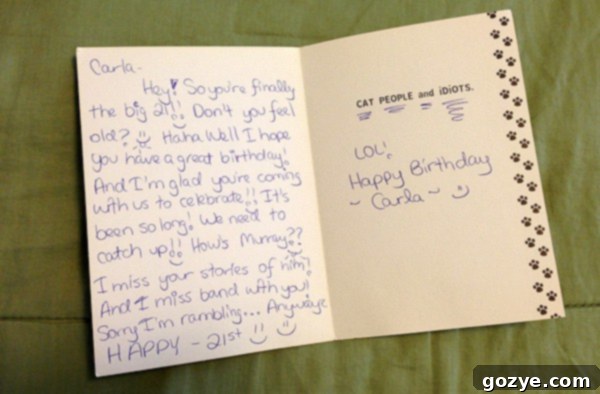 Carla-
Hey! So you're finally
the big 21!! Don't you feel
old? Haha Well I hope
you have a great birthday!
And I'm glad you're coming
with us to celebrate!! It's
been so long! We need to
catch up!! How's Murray??
I miss your stories of him!
And I miss band with you!
Sorry I'm rambling... Anyways
HAPPY - 21st
CAT PEOPLE and iDiOTS.
LOL!
Happy Birthday
~ Carla ~
gozye.com